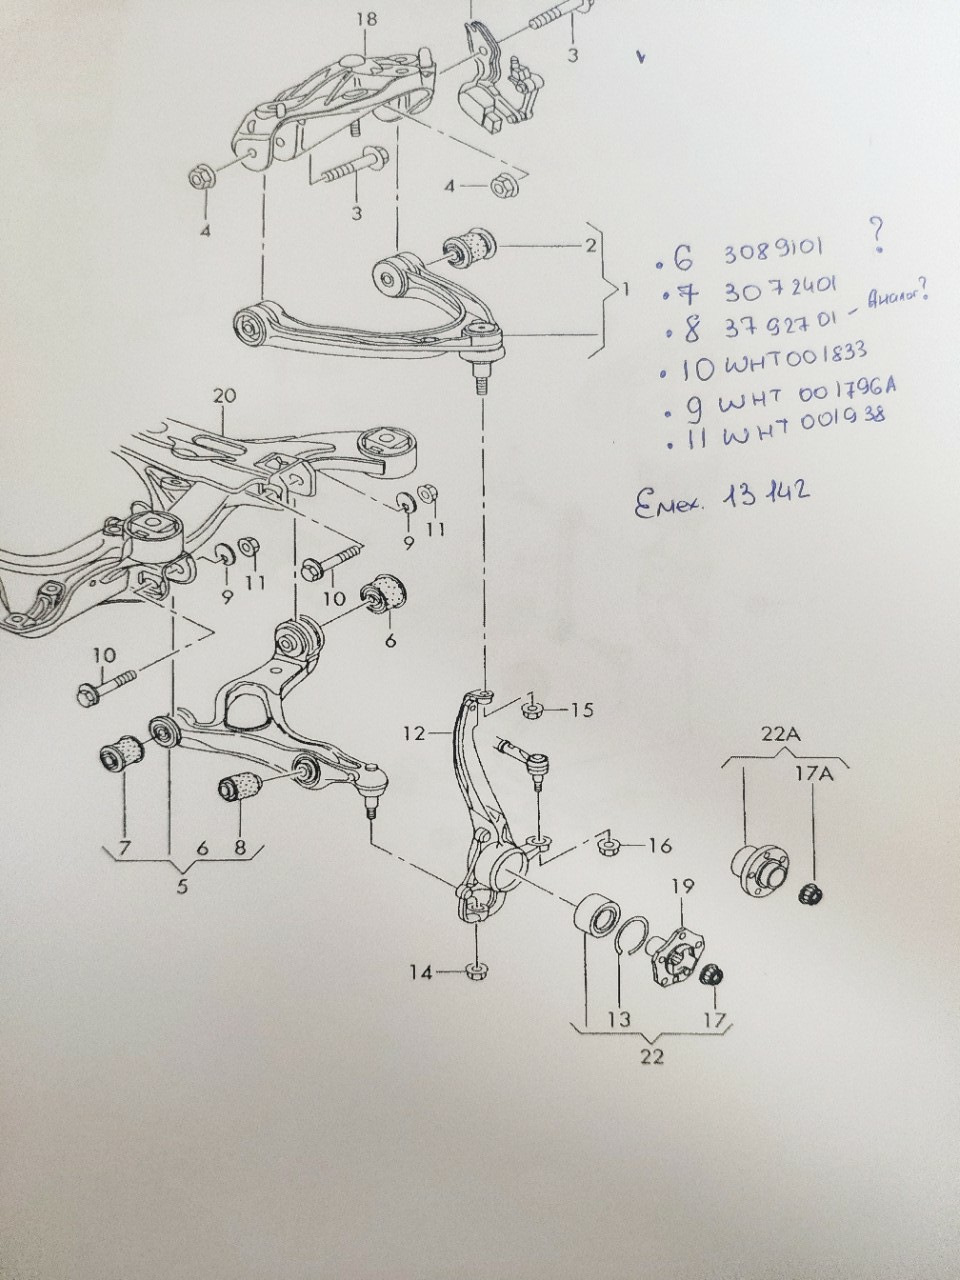 18
3
4
3
4
2
1
• 6 3089101 ?
• 7 3072401
• 8 3792701 – Аналог?
• 10 WHT001833
• 9 WHT 001796A
• 11 WHT 001938
Емех. 13 142
20
9 11
9 11
10
6
10
12
15
7 6 8
5
16
22A
17A
19
14
13 17
22